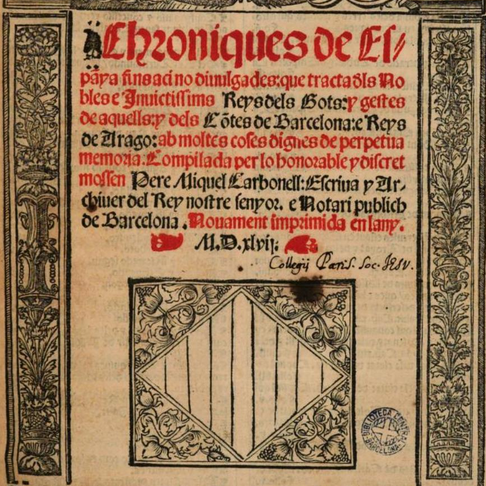 Chroniques de Es/
pãya fins aci no diuulgades: que tracta dls No
bles e Inuictissims Reys dels Gots: y gestes
de aquells: y dels Cõtes de Barcelona: e Reys
de Arago: ab moltes coses dignes de perpetua
memoria. Compilada per lo honorable y discret
mossen Pere Miquel Carbonell: Escriua y Ar-
chiuer del Rey nostre senyor. e Notari publich
de Barcelona. Nouament imprimida en lany.
M.D.xlvij.
Collegij Paris. Soc. JESV.
BIBLIOTECA